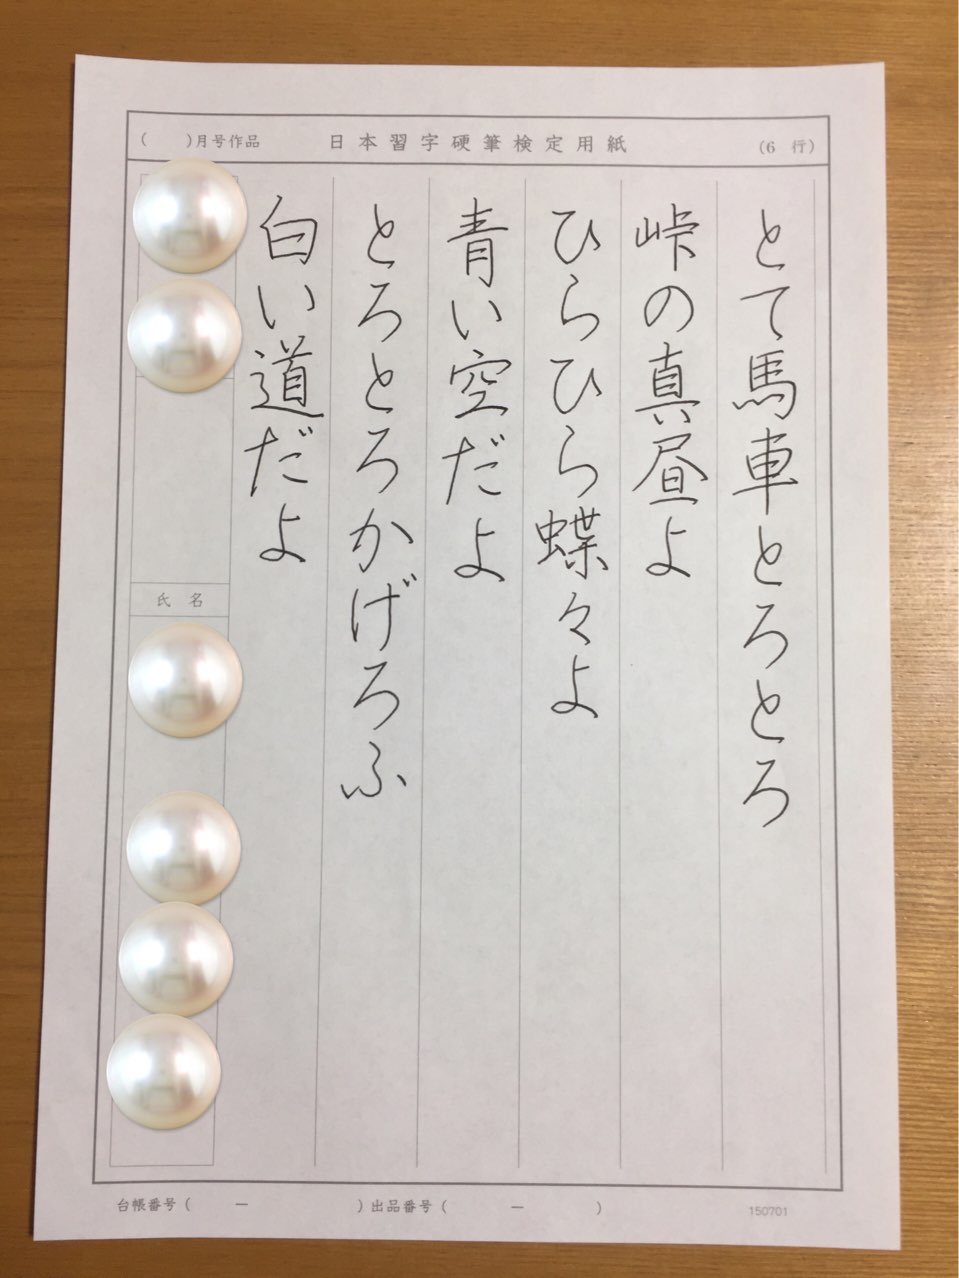 ( )月号作品 日本習字硬筆検定用紙 (6 行)
とて馬車とろとろ
峠の真昼よ
ひらひら蝶々よ
青い空だよ
とろとろかげろふ
白い道だよ
氏名
台帳番号( ー )出品番号( ー )
150701